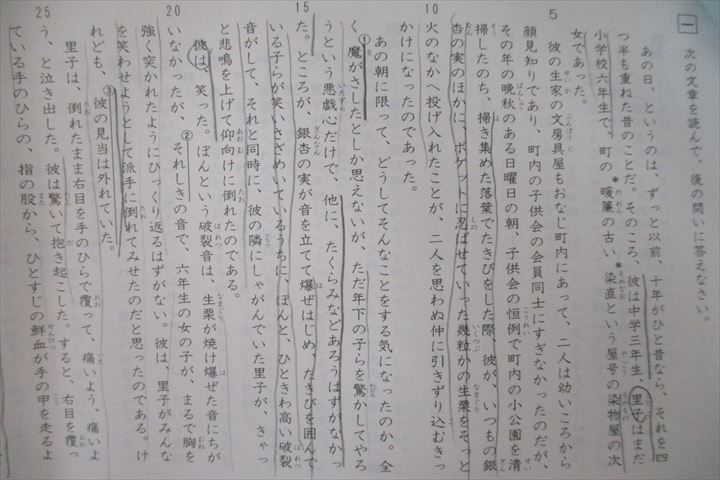 一 次の文章を読んで、後の問いに答えなさい。
あの日、というのは、ずっと以前、十年がひと昔なら、それを四
つ半も重ねた昔のことだ。そのころ、彼は中学三年生、里子はまだ
小学校六年生で、町の*暖簾の古い*染直という屋号の染物屋の次
女であった。
5
彼の生家の文房具屋もおなじ町内にあって、二人は幼いころから
顔見知りであり、町内の子供会の会員同士にすぎなかったのだが、
その年の晩秋のある日曜日の朝、子供会の恒例で町内の小公園を清
掃したのち、掃き集めた落葉でたきびをした際、彼が、いつもの銀
杏の実のほかに、ポケットに忍ばせていった幾粒かの生栗をそっと
10
火のなかへ投げ入れたことが、二人を思わぬ仲に引きずり込むきっ
かけになったのであった。
あの朝に限って、どうしてそんなことをする気になったのか。全
く、①魔がさしたとしか思えないが、ただ年下の子らを驚かしてやろ
うという悪戯心だけで、他に、たくらみなどあろうはずがなかっ
15
た。ところが、銀杏の実が音を立てて爆ぜはじめ、たきびを囲んで
いる子らが笑いさざめいているうちに、ぽんと、ひときわ高い破裂
音がして、それと同時に、彼の隣にしゃがんでいた里子が、きゃっ
と悲鳴を上げて仰向けに倒れたのである。
彼は、笑った。ぽんという破裂音は、生栗が焼け爆ぜた音にちが
20
いなかったが、②それしきの音で、六年生の女の子が、まるで胸を
強く突かれたようにひっくり返るはずがない。彼は、里子がみんな
を笑わせようとして派手に倒れてみせたのだと思ったのである。け
れども、③彼の見当は外れていた。
里子は、倒れたまま右目を手のひらで覆って、痛いよう、痛いよ
25
う、と泣き出した。彼は驚いて抱き起こした。すると、右目を覆っ
ている手のひらの、指の股から、ひとすじの鮮血が手の甲を走るよ